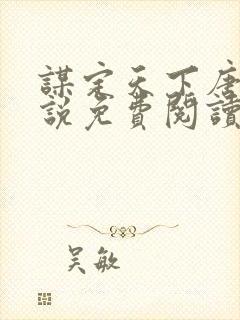 謀定天下唐
說免費閱讀
吴敏